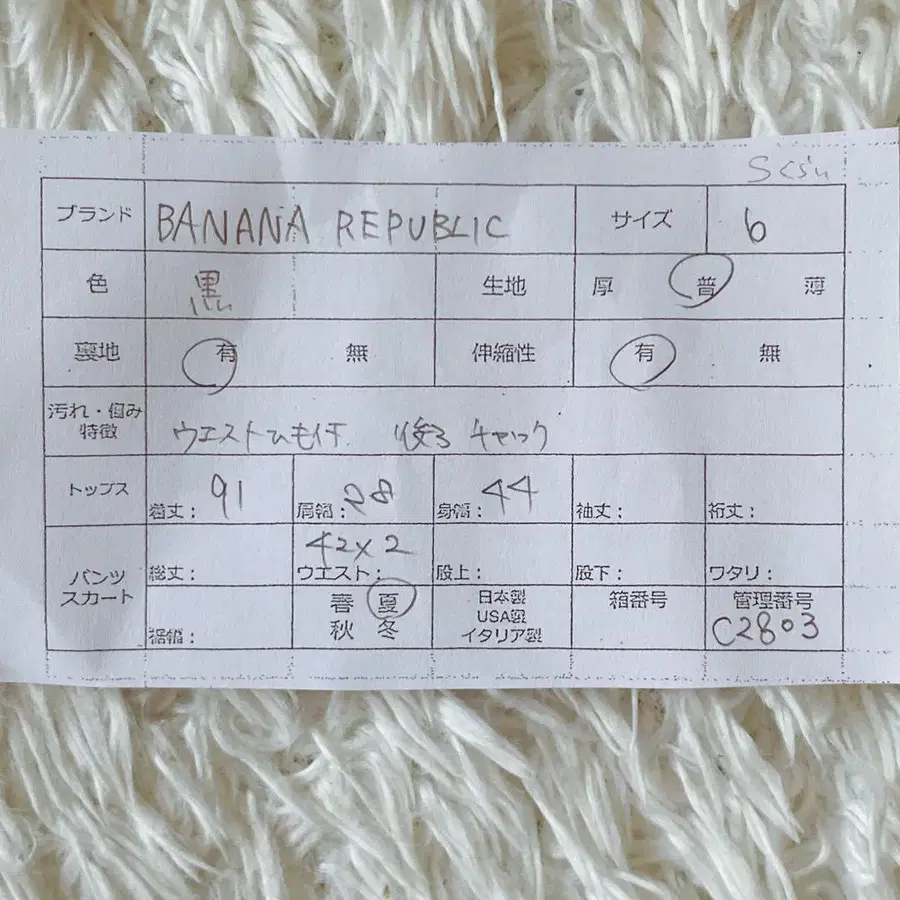 Sくらい
ブランド BANANA REPUBLIC サイズ 6
色 黒 生地 厚 普 薄
裏地 有 無 伸縮性 有 無
汚れ・傷み
特徴 ウエストひも付 後ろ チャック
トップス 着丈: 91 肩幅: 28 身幅: 44 袖丈: 裄丈:
パンツ
スカート
総丈: 42×2 ウエスト: 股上: 股下: ワタリ:
裾幅: 春 夏
秋 冬
日本製
USA製
イタリア製
箱番号
管理番号
C2803